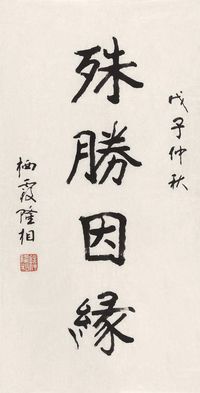 戊子仲秋
殊勝因緣
栖霞隆相